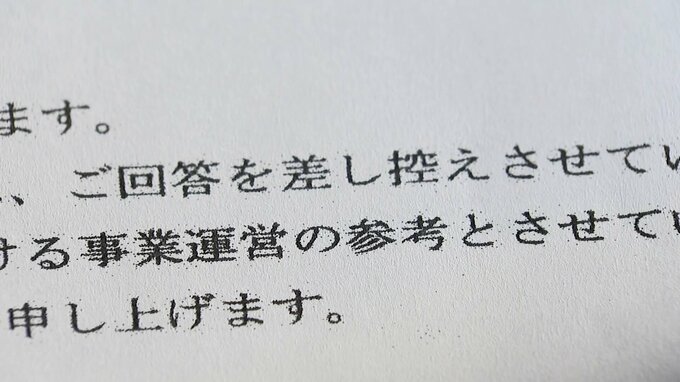 ます。
、ご回答を差し控えさせてい
ける事業運営の参考とさせてい
申し上げます。